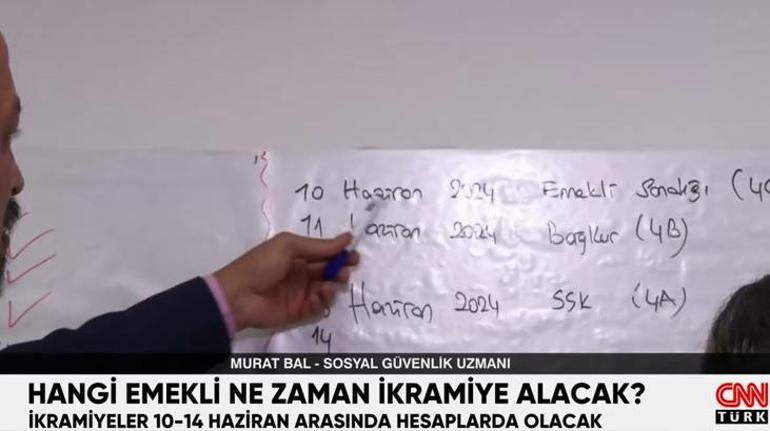 10 Haziran 2024 Emekli Sandığı (4C
11 Haziran 2024 Bağkur (4B)
Haziran 2024 SSK (4A)
14
MURAT BAL - SOSYAL GÜVENLİK UZMANI
HANGİ EMEKLİ NE ZAMAN İKRAMİYE ALACAK?
İKRAMİYELER 10-14 HAZİRAN ARASINDA HESAPLARDA OLACAK
CNN
TÜRK